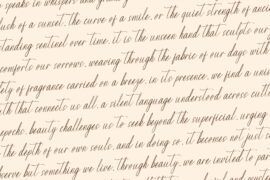 speaks in whispers and
dusk of a sunset, the curve of a smile, or the quiet strength of anci
standing sentinel over time. it is the unseen hand that sculpts our
comforts our sorrows, weaving through the fabric of our days with
ety of fragrance carried on a breeze. in its presence, we find a uni
uth that connects us all, a silent language understood across cultu
epochs. beauty challenges us to seek beyond the superficial, urging
the depth of our own souls, and in doing so, it becomes not just so
serve but something we live. through beauty, we are invited to par